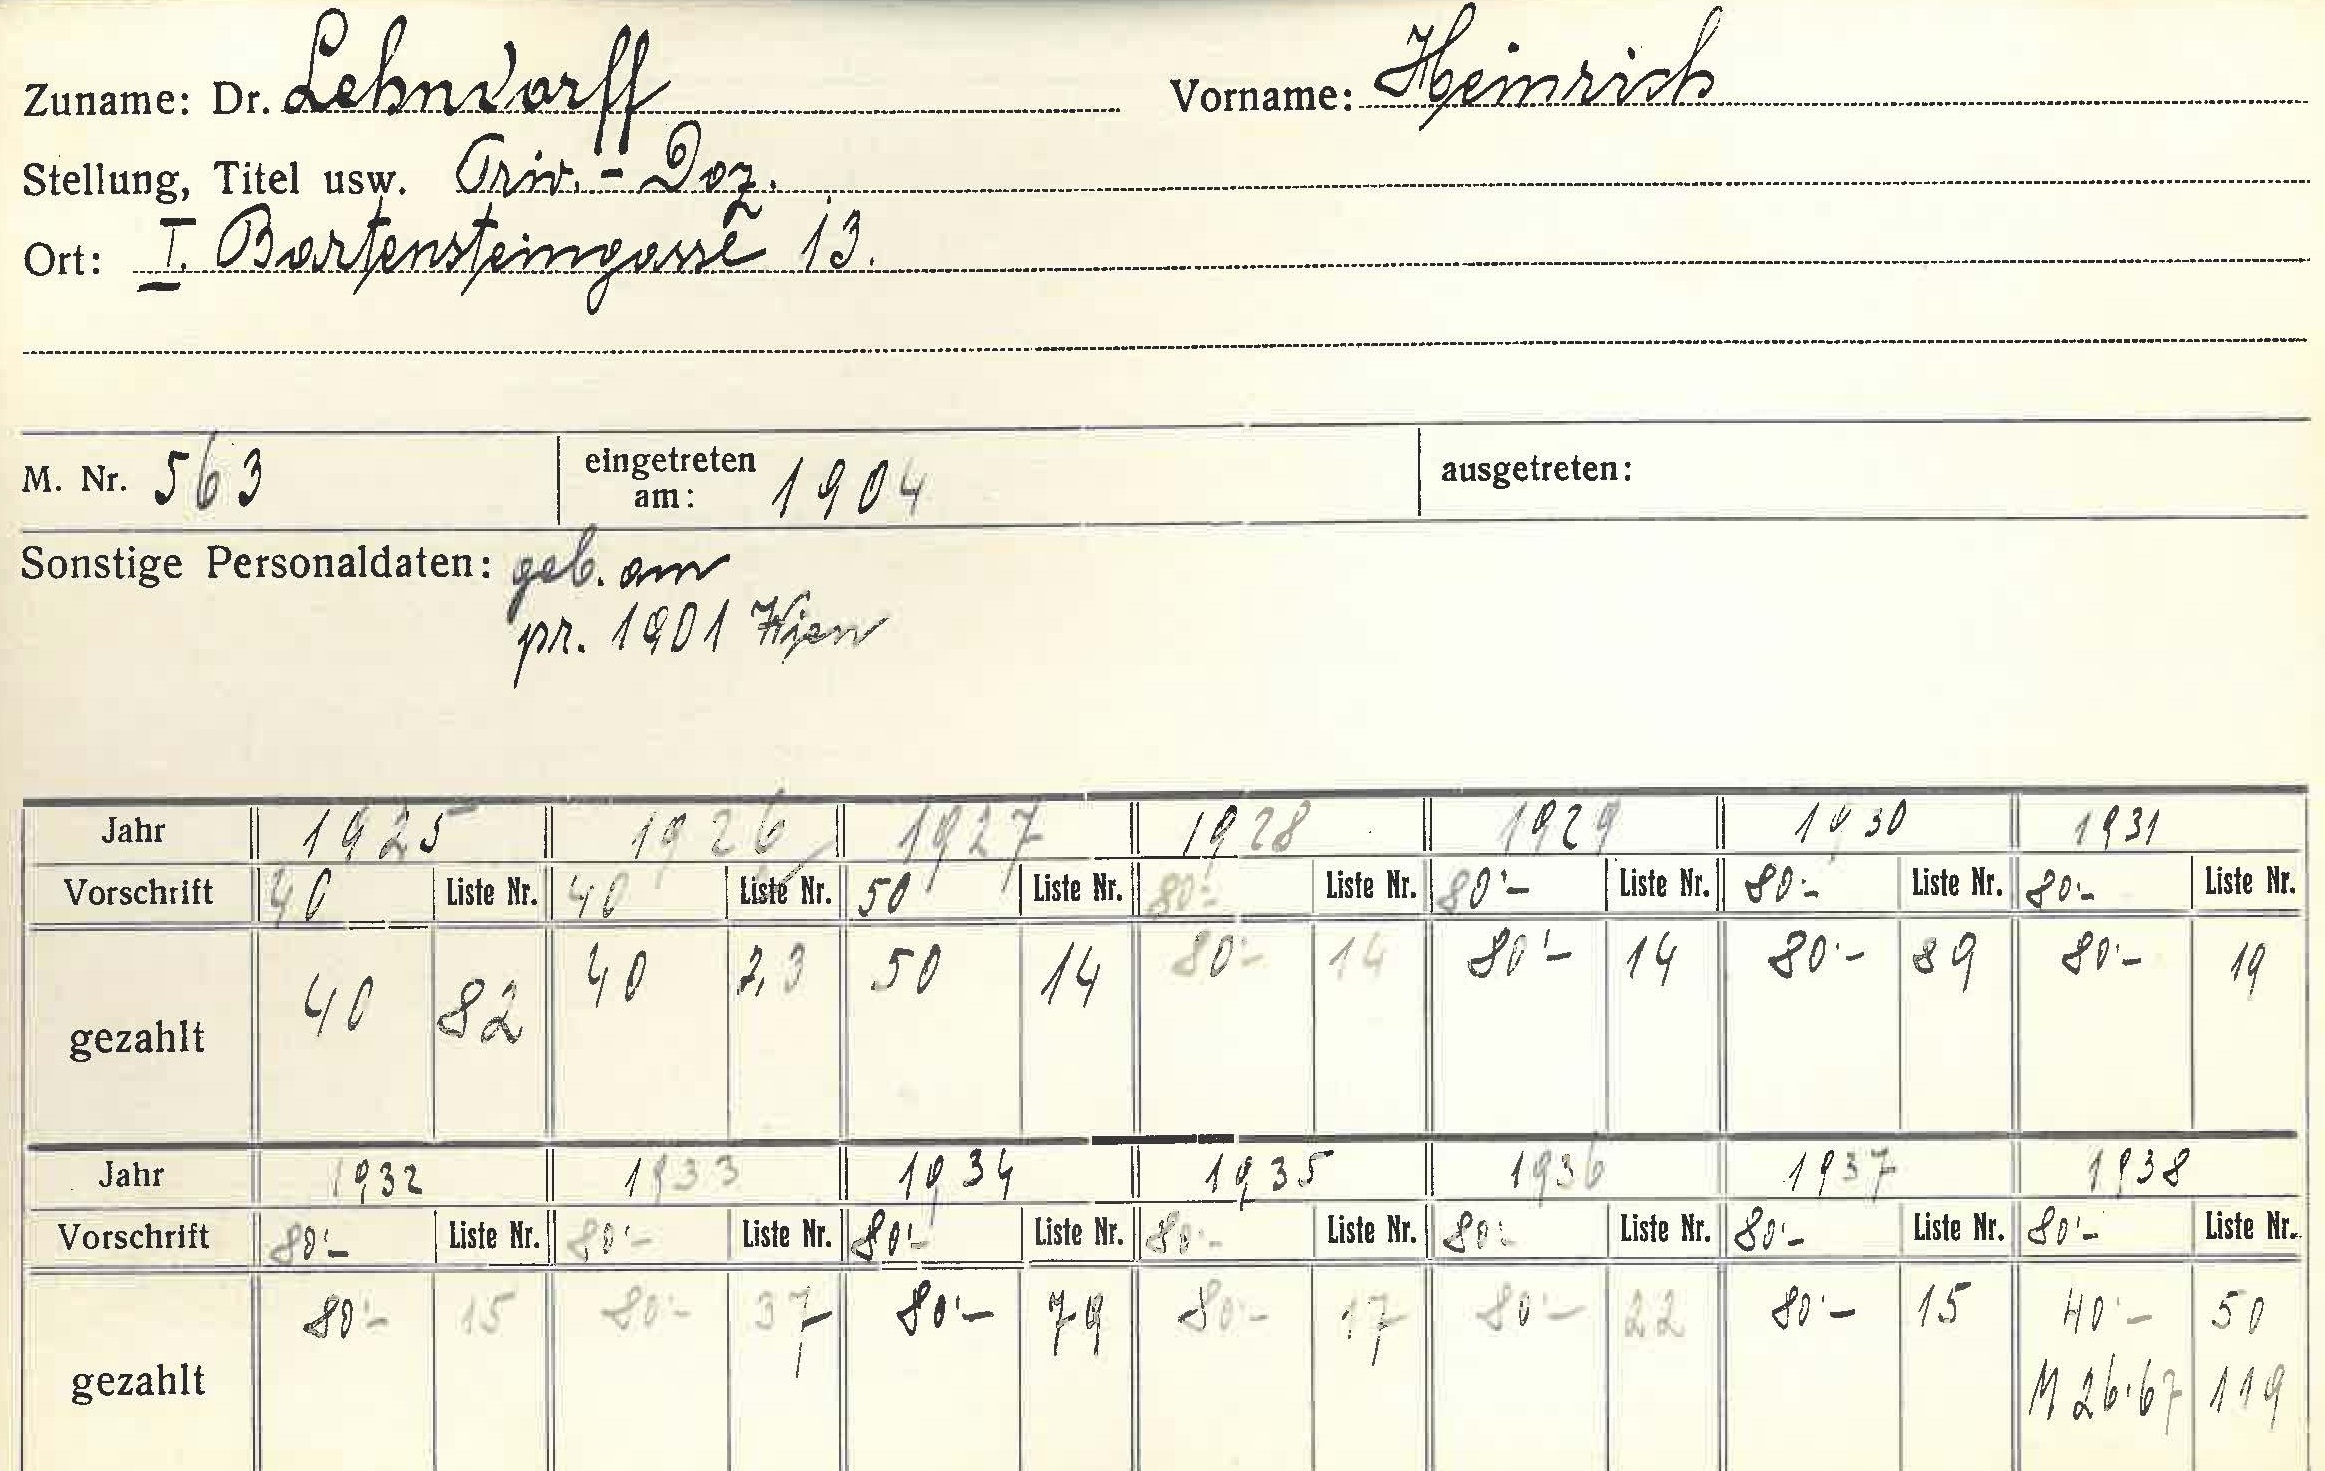 Zuname: Dr. Lehndorff Vorname: Heinrich
Stellung, Titel usw. Priv.-Doz.
Ort: I. Bartensteingasse 13.
M. Nr. 563 eingetreten am: 1904 ausgetreten:
Sonstige Personaldaten: geb. am
pr. 1901 Wien
Jahr 1925 1926 1927 1928 1929 1930 1931
Vorschrift 40 Liste Nr. 40 Liste Nr. 50 Liste Nr. 80·- Liste Nr. 80·- Liste Nr. 80·- Liste Nr. 80·- Liste Nr.
gezahlt 40 82 40 23 50 14 80·- 14 80·- 14 80·- 89 80·- 19
Jahr 1932 1933 1934 1935 1936 1937 1938
Vorschrift 80·- Liste Nr. 80·- Liste Nr. 80·- Liste Nr. 80·- Liste Nr. 80·- Liste Nr. 80·- Liste Nr. 80·- Liste Nr.
gezahlt 80·- 15 80·- 37 80·- 79 80·- 17 80·- 22 80·- 15 40·- 50
M 26·67 119